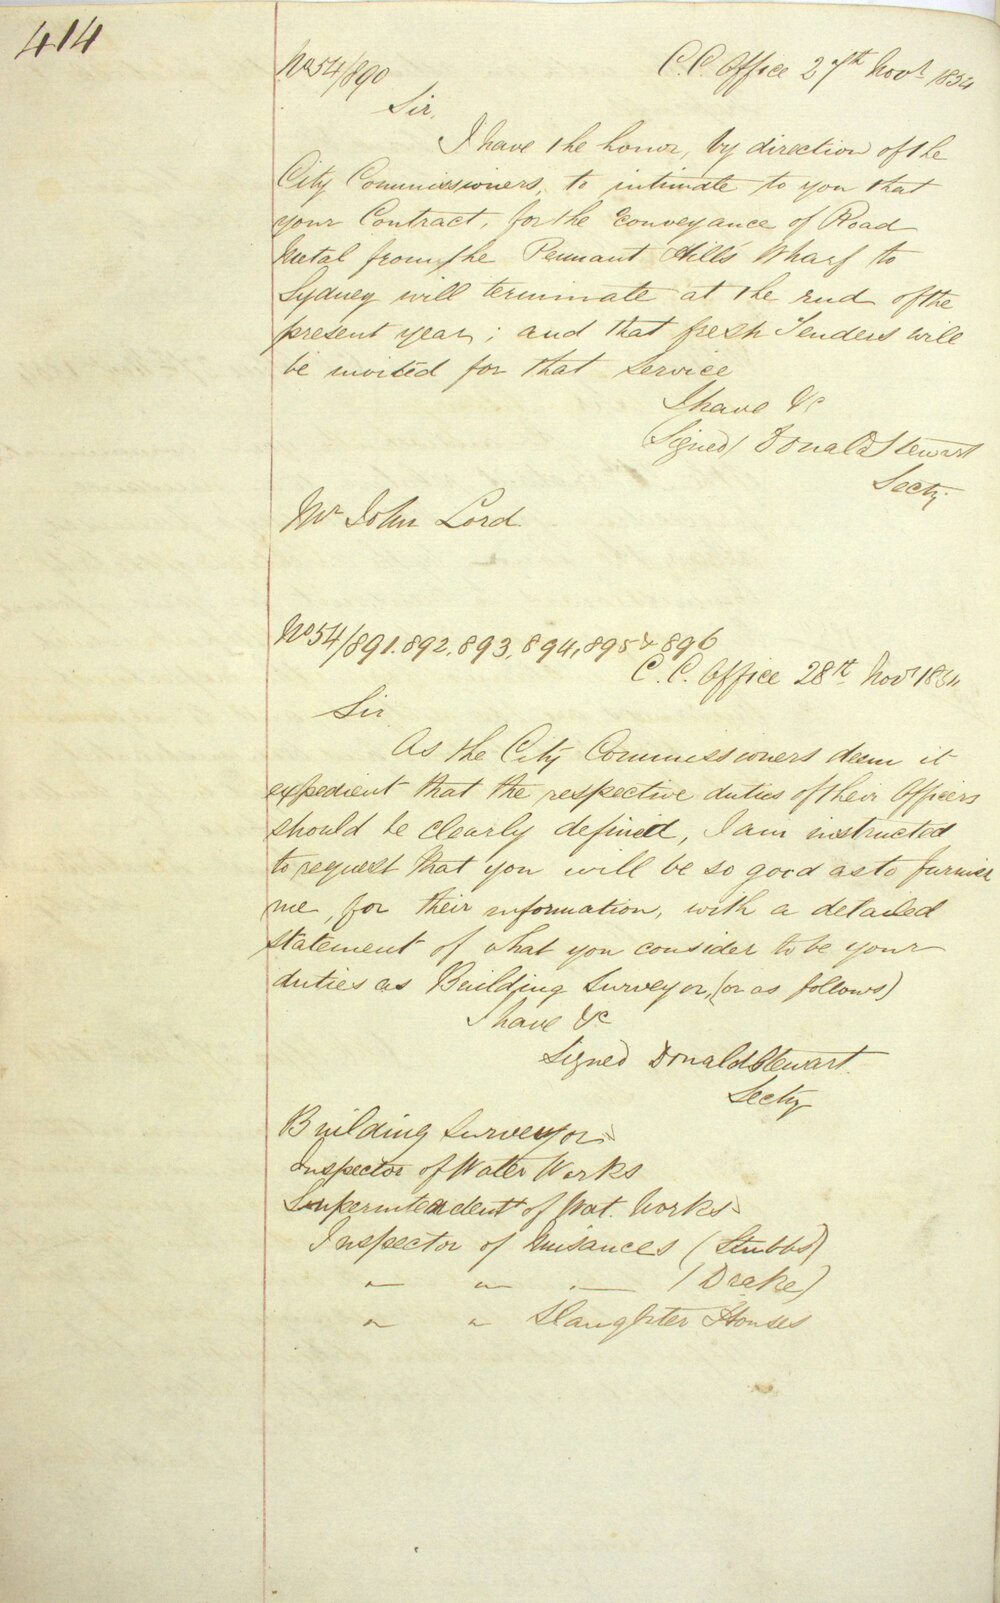 414
No 54/890
C.C. Office 27th Novr 1854
Sir,
I have the honor, by direction of the
City Commissioners, to intimate to you that
your Contract, for the conveyance of Road
Metal from the Pennant Hills Wharf to
Sydney will terminate at the end of the
present year; and that fresh Tenders will
be invited for that service
I have &c
(Signed) Donald Stewart
Secty.
Mr John Lord
No 54/891.892.893.894.895 & 896
C.C. Office 28th Novr 1854
Sir
As the City Commissioners deem it
expedient that the respective duties of their Officers
should be clearly defined, I am instructed
to request that you will be so good as to furnish
me, for their information, with a detailed
statement of what you consider to be your
duties as Building Surveyor, (or as follows)
I have &c
Signed Donald Stewart.
Secty
Building Surveyor
Inspector of Water Works
Superintendent of Wat. Works
Inspector of Nuisances (Stubbs)
" " " (Drake)
" " Slaughter Houses